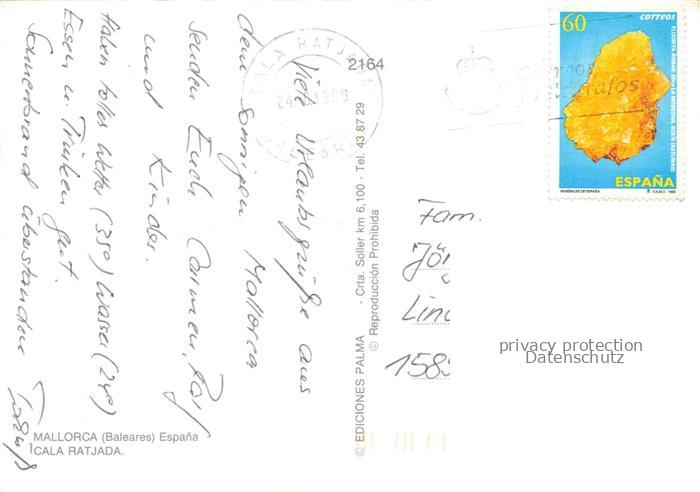 Viele Urlaubsgrüße aus
dem sonnigen Mallorca
senden Euch Carmen, Ralf
und Kinder.
Haben tolles Wetter (35°) Wasser (24°)
Essen u. Trinken gut.
Sonnenbrand überstanden
MALLORCA (Baleares) España
CALA RATJADA.
2164
© EDICIONES PALMA - Crta. Soller km 6,100 - Tel. 43 87 29
© Reproducción Prohibida
CALA RATJADA
BALEARES
60
correos
ESPAÑA
MINERALES DE ESPAÑA
Correos
Telégrafos
Fam.
Jör
Lind
1589
privacy protection
Datenschutz